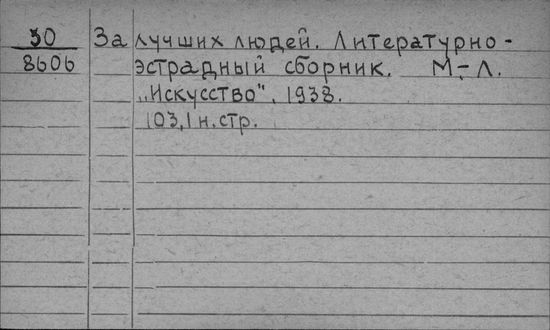 30 За лучших людей. Литературно-
8606 эстрадный сборник. М.-Л.
„Искусство", 1938.
103,1 н.стр.